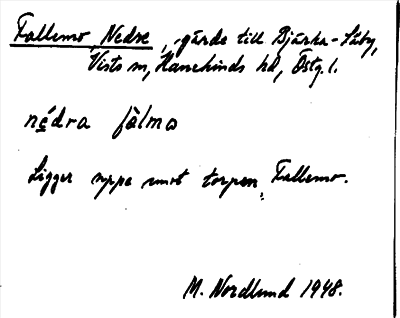 Fallemo, Nedre, gärde till Bjärka-Säby,
Vists sn, Hanekinds hd, Östg. l.
nedra falmo
Ligger uppe mot torpen Fallemo.
M. Nordlund 1948.